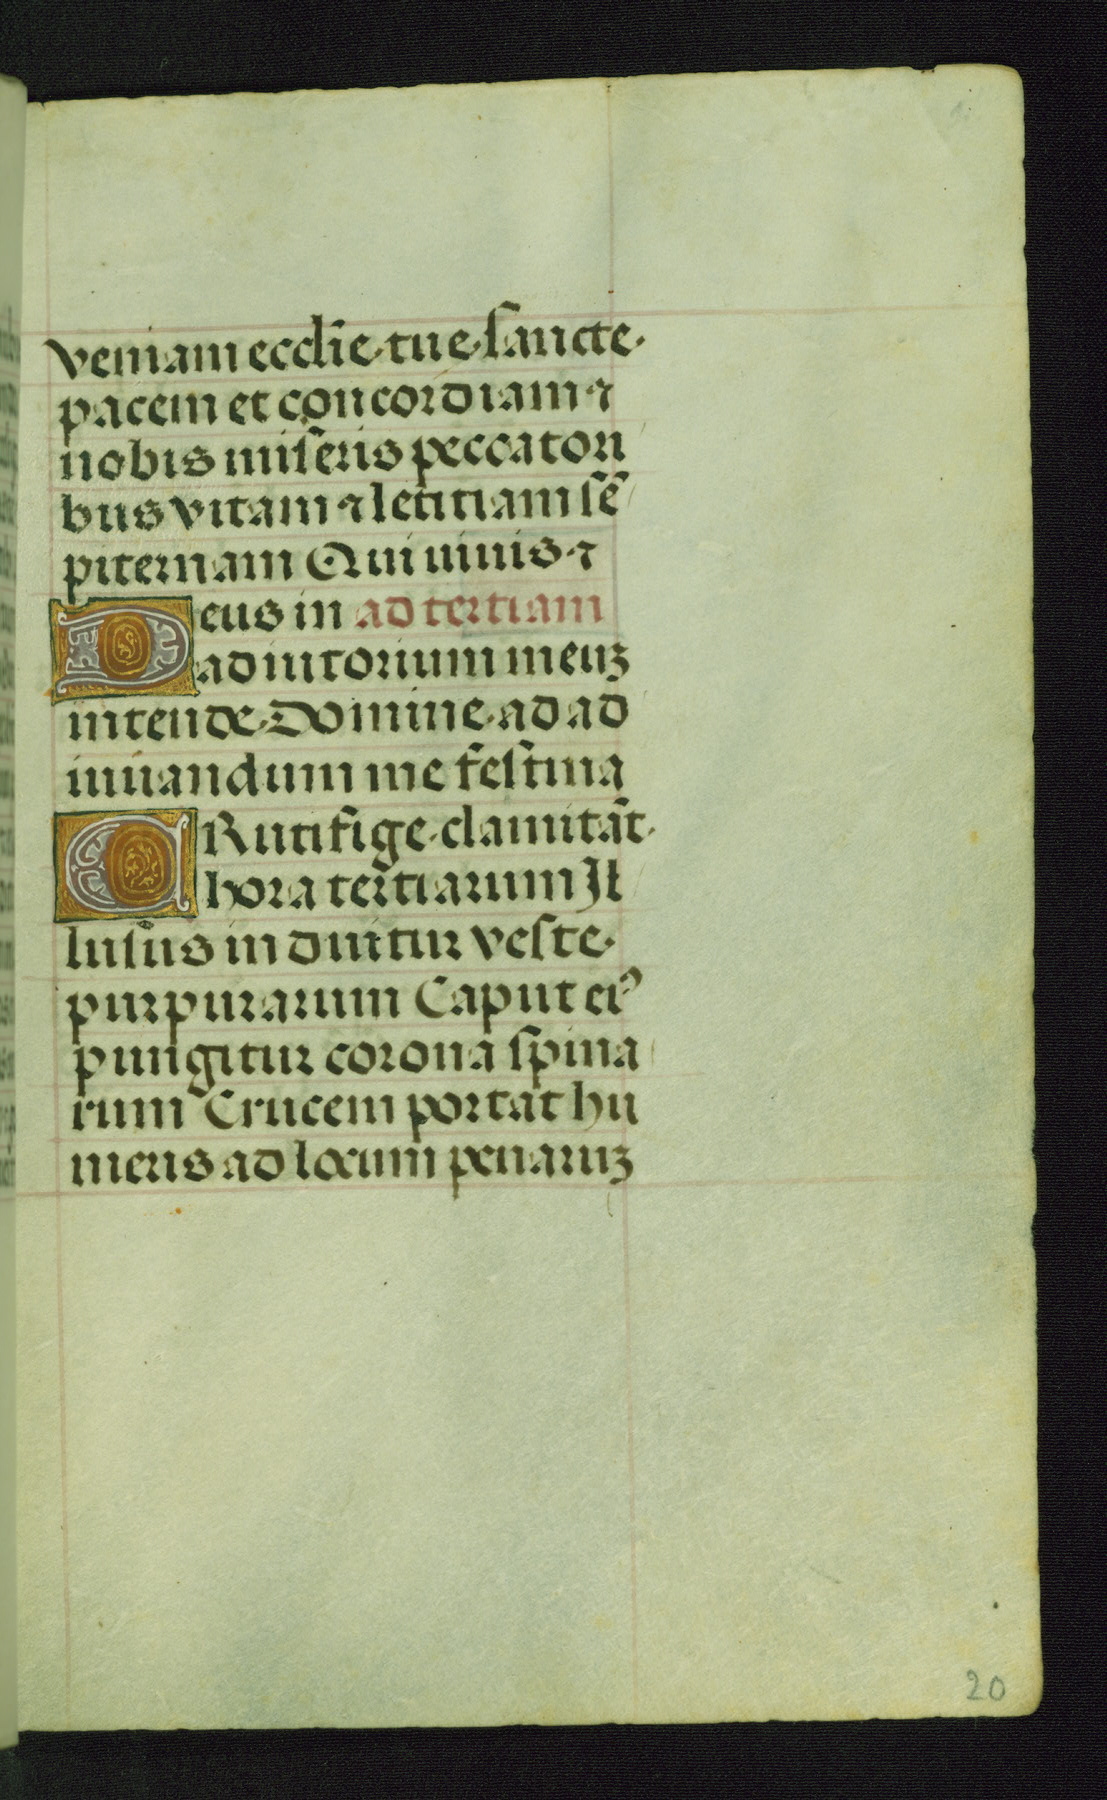 veniam eccl̄ie·tue·sancte·
pacem et concordiam ⁊
nobis miseris peccatori
bus vitam ⁊ letitiam sē
piternam Qui uiuis·⁊
Deus in ad tertiam
adiutorium meuʒ
intende·Domine·ad ad
iuuandum me festina
CRutifige·clamitāt·
hora tertiarum Il
lusus induitur veste·
purpurarum Caput eiꝰ
pungitur corona spina
rum Crucem portat hu
meris ad locum penaruʒ
20